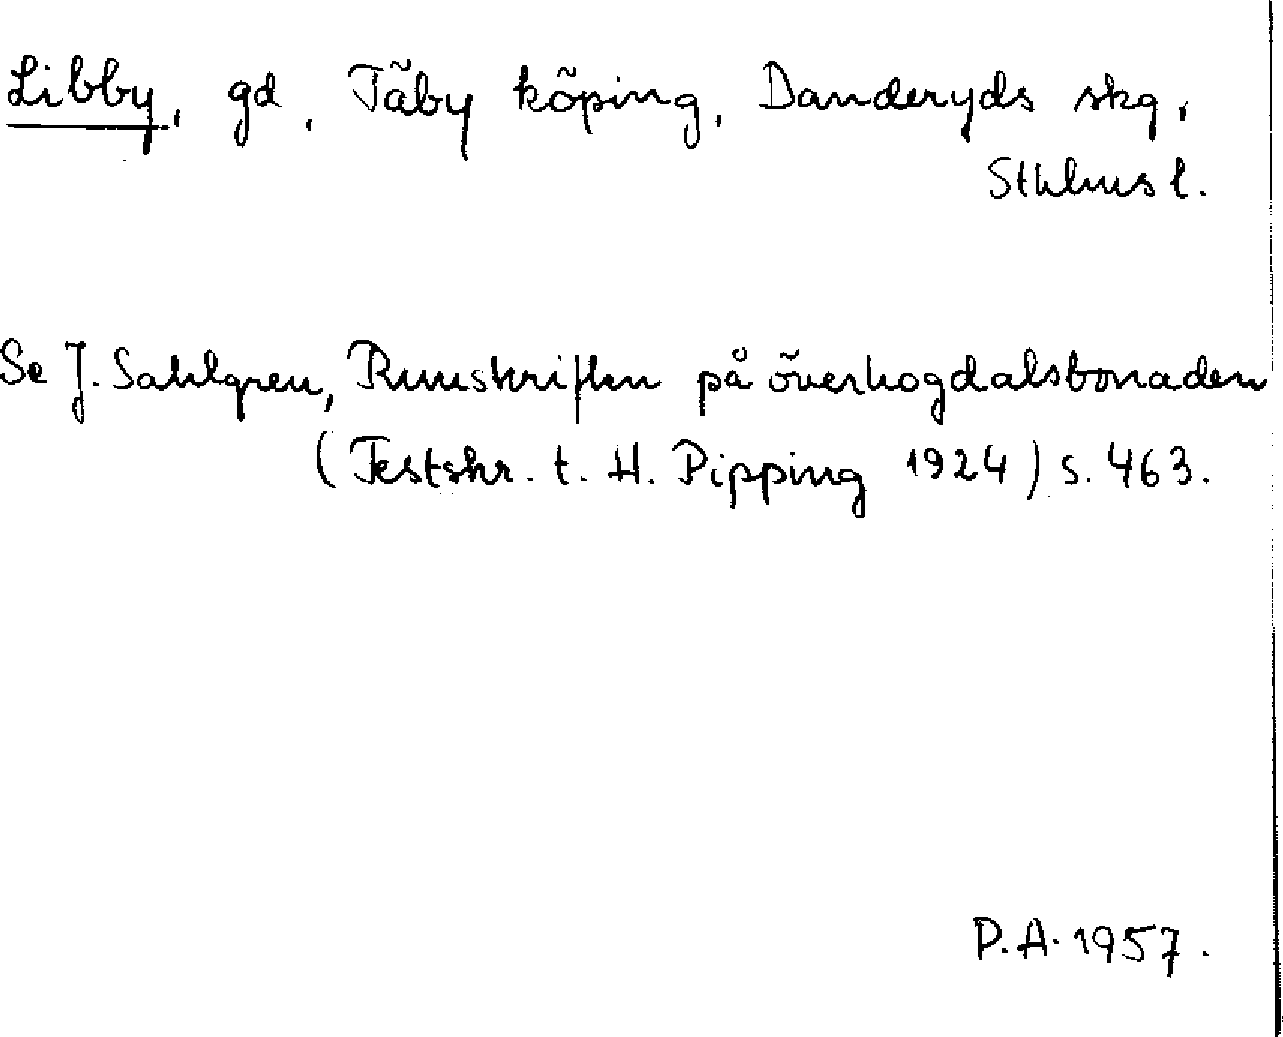 Libby, gd, Täby köping, Danderyds skg,
Sthlms l.
Se J. Sahlgren, Runskriften på överhogdalsbonaden
(Festskr. t. H. Pipping 1924) s. 463.
P.A. 1957.